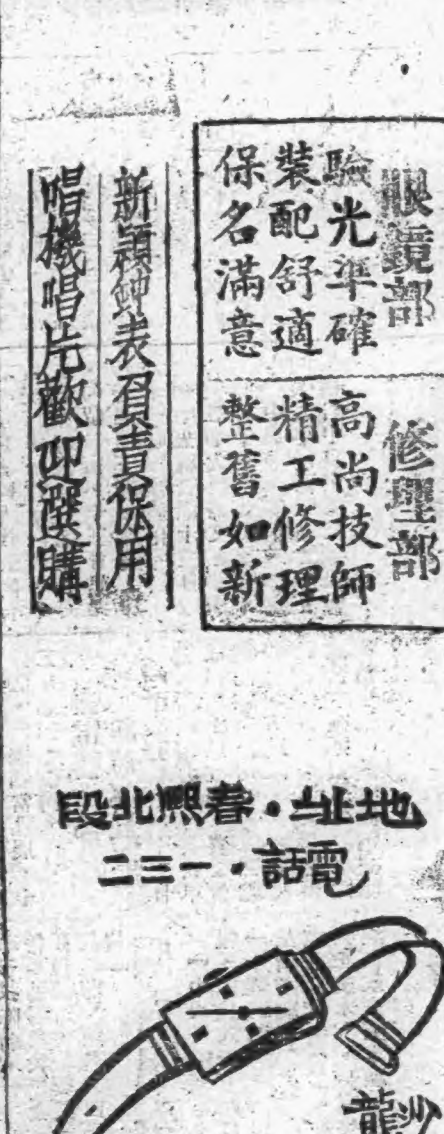 眼鏡部
驗光準確
裝配舒適
保名滿意
修理部
高尚技師
精工修理
整舊如新
新穎鐘表負責保用
唱機唱片歡迎選購
地址·春熙北段
電話·一三二
沙龍